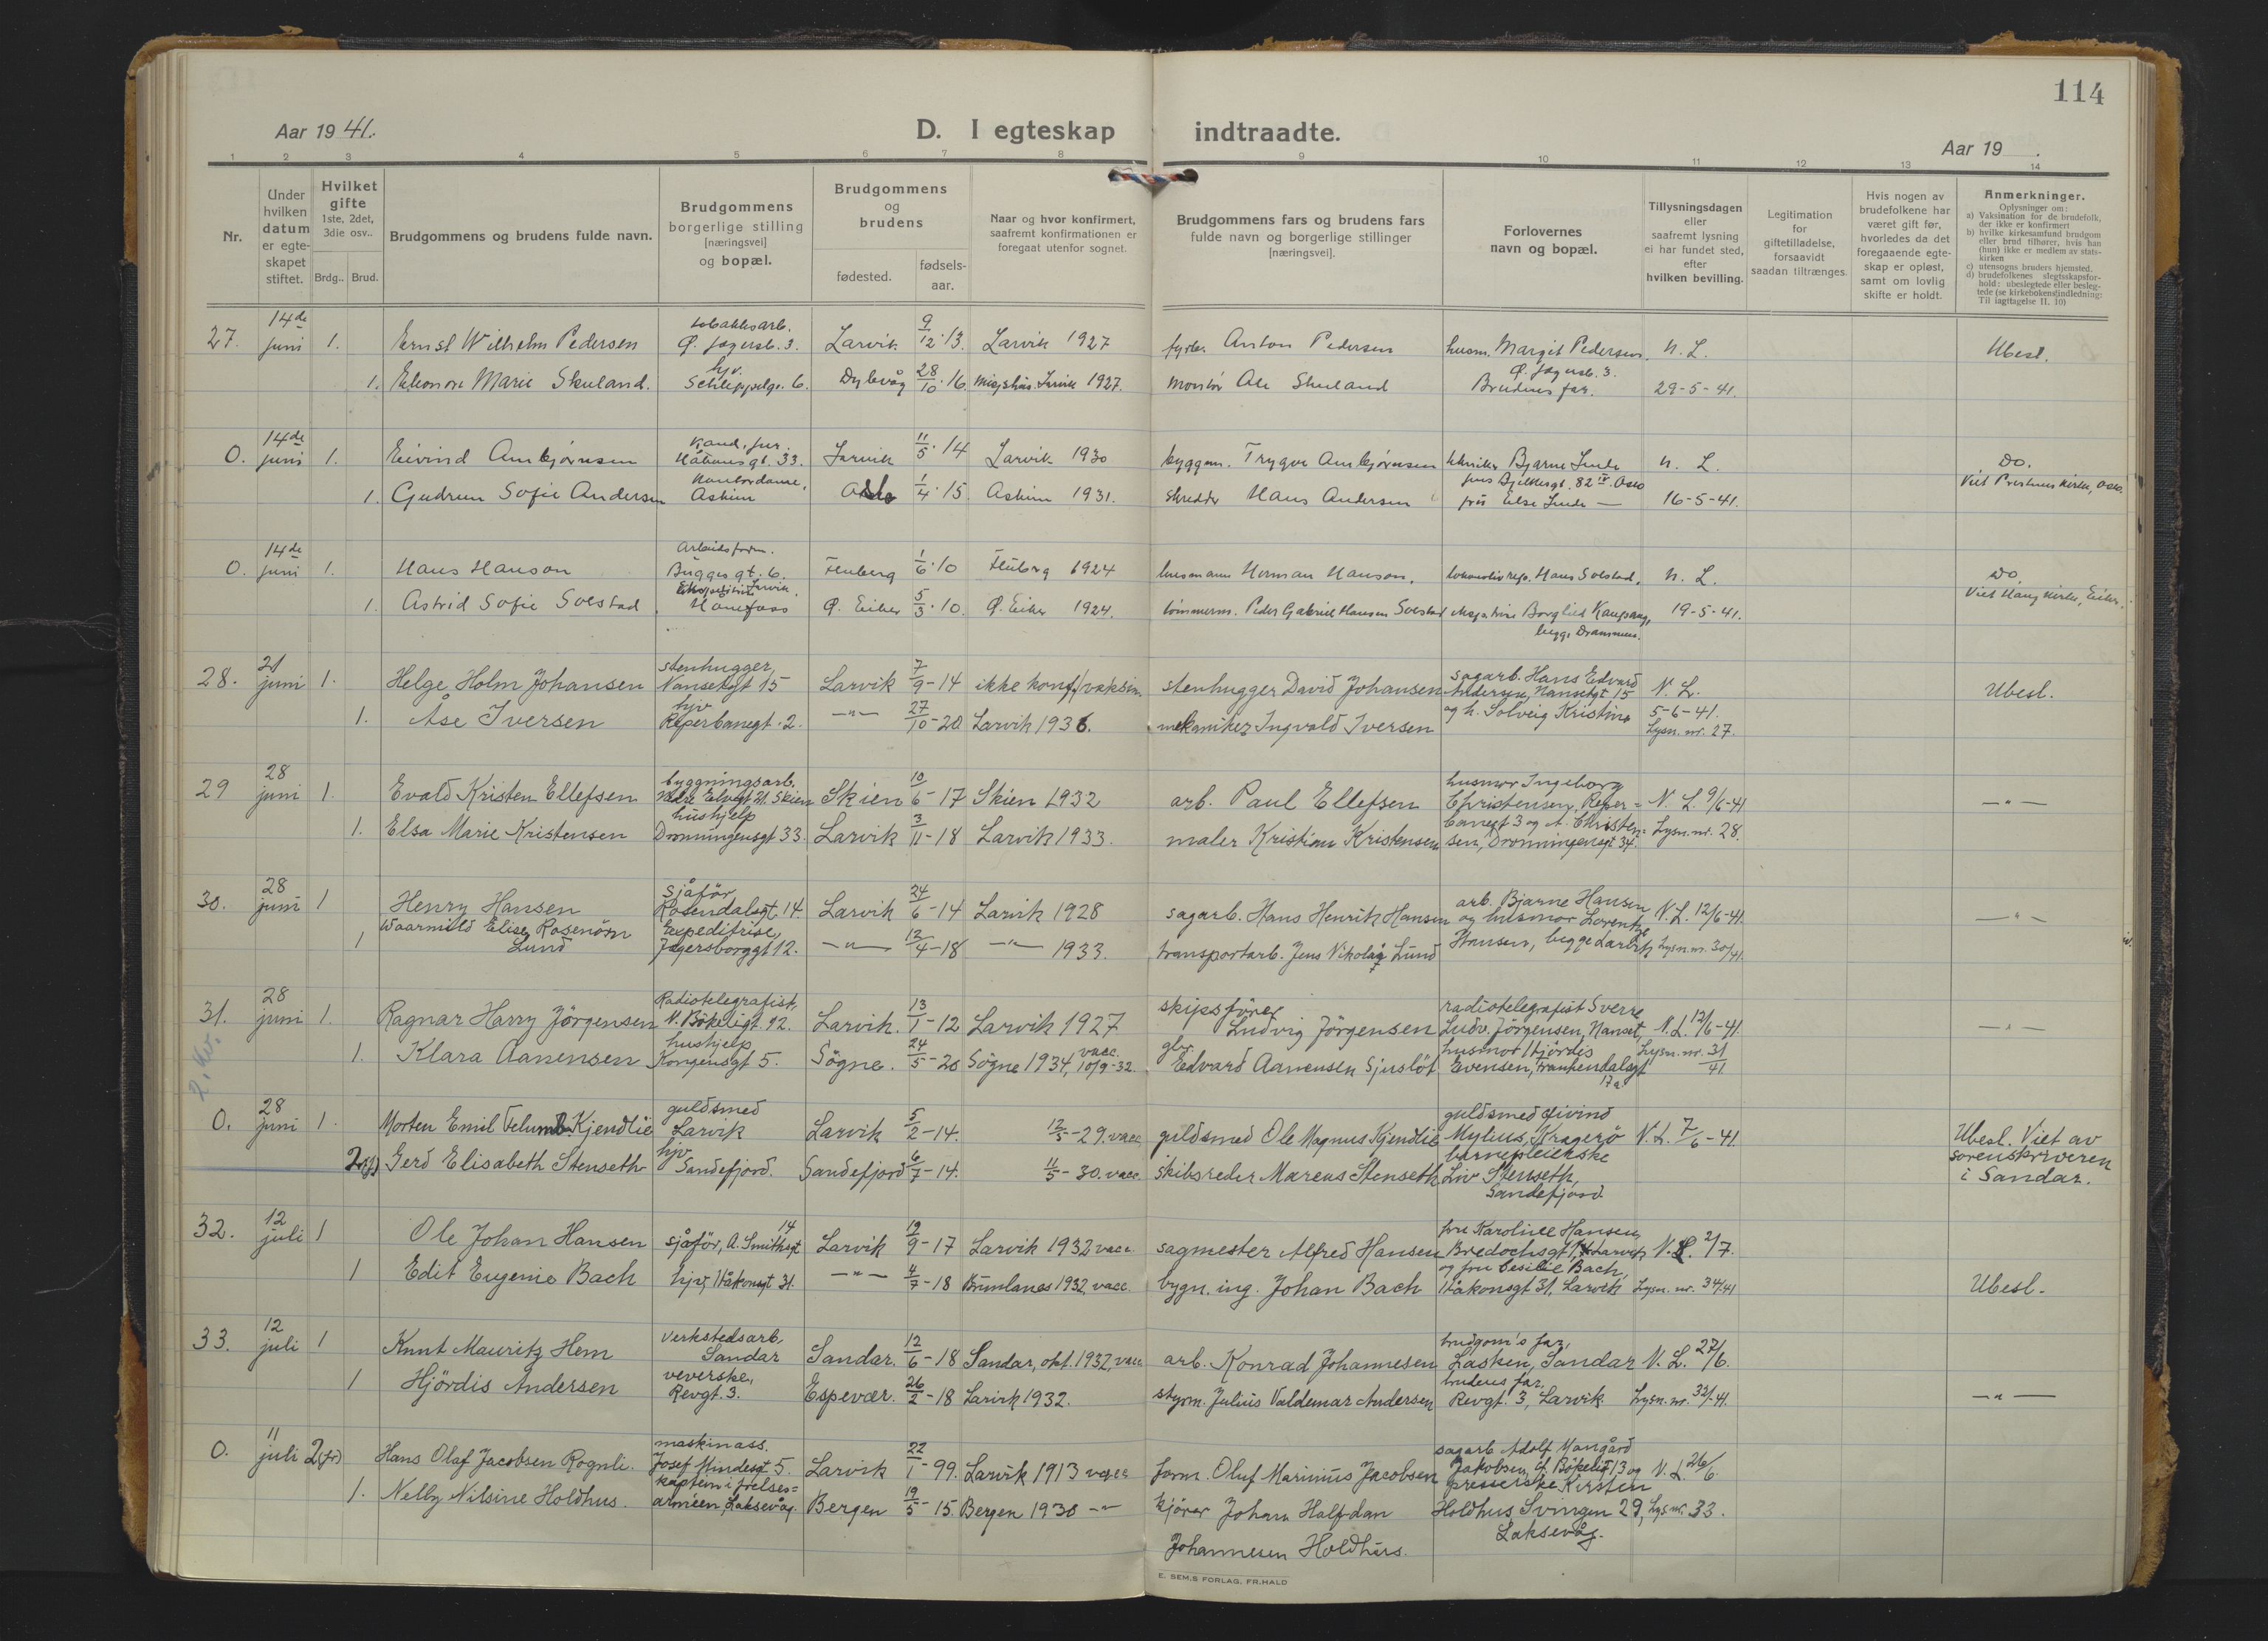 114
Aar 1941.
D. I egteskap indtraadte.
Aar 19 .
1 2 3 4 5 6 7 8 9 10 11 12 13 14
Nr.
Under hvilken datum er egteskapet stiftet.
Hvilket gifte 1ste, 2det, 3die osv..
Brdg.. Brud.
Brudgommens og brudens fulde navn.
Brudgommens borgerlige stilling [næringsvei] og bopæl.
Brudgommens og brudens
fødested.
fødsels-aar.
Naar og hvor konfirmert, saafremt konfirmationen er foregaat utenfor sognet.
Brudgommens fars og brudens fars fulde navn og borgerlige stillinger [næringsvei].
Forlovernes navn og bopæl.
Tillysningsdagen eller saafremt lysning ei har fundet sted, efter hvilken bevilling.
Legitimation for giftetilladelse, forsaavidt saadan tiltrænges.
Hvis nogen av brudefolkene har været gift før, hvorledes da det foregaaende egteskap er opløst, samt om lovlig skifte er holdt.
Anmerkninger.
Oplysninger om:
a) Vaksination for de brudefolk, der ikke er konfirmert
b) hvilke kirkesamfund brudgom eller brud tilhører, hvis han (hun) ikke er medlem av statskirken
c) utensogns bruders hjemsted.
d) brudefolkenes slegtsskapsforhold: ubeslegtede eller beslegtede (se kirkebokens indledning: Til iagttagelse II. 10)
27. 14de juni 1. Ernst Wilhelm Pedersen tobakksarb. Ø. Jegersb. 3. Larvik 9/12·13. Larvik 1927 fyrb. Anton Pedersen husm. Margit Pedersen, Ø. Jegersb. 3. N. L. Ubesl.
1. Eleonore Marie Skuland. hjv. Schleppelgr. 6. Dybvåg 28/10·16. Larvik 1927. montør Ole Skuland Brudens far. 29-5-41.
0. 14de juni 1. Eivind Ambjørnsen Kand. jur. Håkonsgt. 33. Larvik 11/5·14 Larvik 1930 byggm. Trygve Ambjørnsen tekniker Bjarne Linde 82 IV. Oslo N. L. Do.
Viet Kirke, Oslo.
1. Gudrun Sofie Andersen Kontordame, Askim Oslo 1/4·15. Askim 1931. skredder Hans Andersen frü Else Linde — 16-5-41.
0. 14de juni 1. Hans Hanson Arbeidsform. Bugges gt. 6. Larvik. Flesberg 1/6·10 Flesberg 1924 husmann Herman Hanson, lokomotivrep. Hans Solstad, N. L. Do.
Viet Haug Kirke, Eiker.
1. Astrid Sofie Solstad Ekspeditrise Hønefoss Ø. Eiker 5/3·10. Ø. Eiker 1924. tømmerm. Peder Gabriel Hansen Solstad Borghild Kaupang, begge Drammen. 19-5-41.
28. 21 juni 1. Helge Holm Johansen stenhugger, Nansetgt 15 Larvik 7/9-14 ikke konf./vaksin. stenhugger David Johansen sagarb. Hans Edvard Andersen, Nansetgt 15 og h. Solveig Kristine N. L. Ubesl.
1. Åse Iversen hjv Reperbanegt. 2. —"— 27/10-20 Larvik 1936. mekaniker Ingvald Iversen 5-6-41. Lysn. nr. 27.
29 28 juni 1. Evald Kristen Ellefsen byggningsarb. Nedre Elvegt 21. Skien Skien 10/6-17 Skien 1932 arb. Paul Ellefsen husmor Ingeborg Christensen, Reperbanegt 3 og A. Christensen, Dronningensgt 34. N. L. 9/6-41 —"—
1. Elsa Marie Kristensen hushjelp Dronningensgt 33. Larvik 3/11-18 Larvik 1933. maler Kristian Kristensen Lysn. nr. 28.
30. 28 juni 1 Henry Hansen Sjåför Rosendalsgt 14. Larvik 24/6-14 Larvik 1928 sagarb. Hans Henrik Hansen arb. Bjarne Hansen og husmor Lorentze Hansen, begge Larvik N. L. 12/6-41. —"—
1 Waarmild Elise Rosenörn Lund Expeditrise, Jegersborggt 12. —"— 12/4-18 —"— 1933. transportarb. Jens Nikolai Lund Lysn. nr. 30/41.
31. 28 juni 1. Ragnar Harry Jörgensen Radiotelegrafist, N. Bökeligt. 12. Larvik. 13/1-12 Larvik 1927 skipsförer Ludvig Jörgensen radiotelegrafist Sverre Ludv. Jörgensen, Nanset N. L. 12/6-41. —"—
1. Klara Aanensen hushjelp Kongensgt 5. Sögne. 24/5-20 Sögne 1934, vacc. 10/9-32. gbr. Edvard Aanensen Sjuslöt husmor Hjördis Evensen, Frankendalsgt 17a Lysn. nr. 31/41
2. kv.
0. 28 juni 1. Morten Emil Felumb Kjendlie guldsmed Larvik Larvik 5/2-14. 12/5-29. vacc. guldsmed Ole Magnus Kjendlie guldsmed Øivind Mylius, Kragerö N. L. 7/6-41 Ubesl. Viet av sorenskriveren i Sandar.
2(f) Gerd Elisabeth Stenseth hjv Sandefjord. Sandefjord 6/7-14. 11/5-30. vacc. skibsreder Marcus Stenseth barnepleierske Liv Stenseth, Sandefjord
32. 12 juli 1 Ole Johan Hansen sjåför, A. Smithsgt 14 Larvik 19/9-17 Larvik 1932 vacc. sagmester Alfred Hansen fru Karoline Hansen, Bredochsgt 14 Larvik N. L. 2/7.
1 Edit Eugenie Bach hjv, Håkonsgt 31. —"— 4/7-18 Brunlanes 1932, vacc. bygn. ing. Johan Bach og fru Cesilie Bach, Håkonsgt 31, Larvik Lysn. nr. 34/41 Ubesl.
33. 12 juli 1 Knut Mauritz Hem Verkstedsarb Sandar Sandar. 12/6-18 Sandar, okt. 1932, vacc. arb. Konrad Johannesen brudgom's far, Lasken, Sandar N. L. 27/6.
1 Hjördis Andersen veverske, Revgt. 3. Espevær. 26/2-18 Larvik 1932. styrm. Julius Valdemar Andersen brudens far, Revgt. 3, Larvik. Lysn. nr. 32/-41. —"—
0. 11 juli 2(fr) Hans Olaf Jacobsen Rognli. maskinass. Josef Mindesgt. 5. Larvik 22/1-99. Larvik 1913 vacc. form. Oluf Marinius Jacobsen sagarb. Adolf Mangård Jakobsen, Bökeligt 13 og N. L. 26/6.
1. Nelly Nilsine Holdhus. kaptein i frelsesarmeen, Laksevåg. Bergen 19/5-15. Bergen 1930 —"— kjörer Johan Halfdan Johannesen Holdhus. presserske Kirsten Holdhus Svingen 29, Laksevåg. Lys. nr. 33.
E. SEM.S FORLAG, FR.HALD